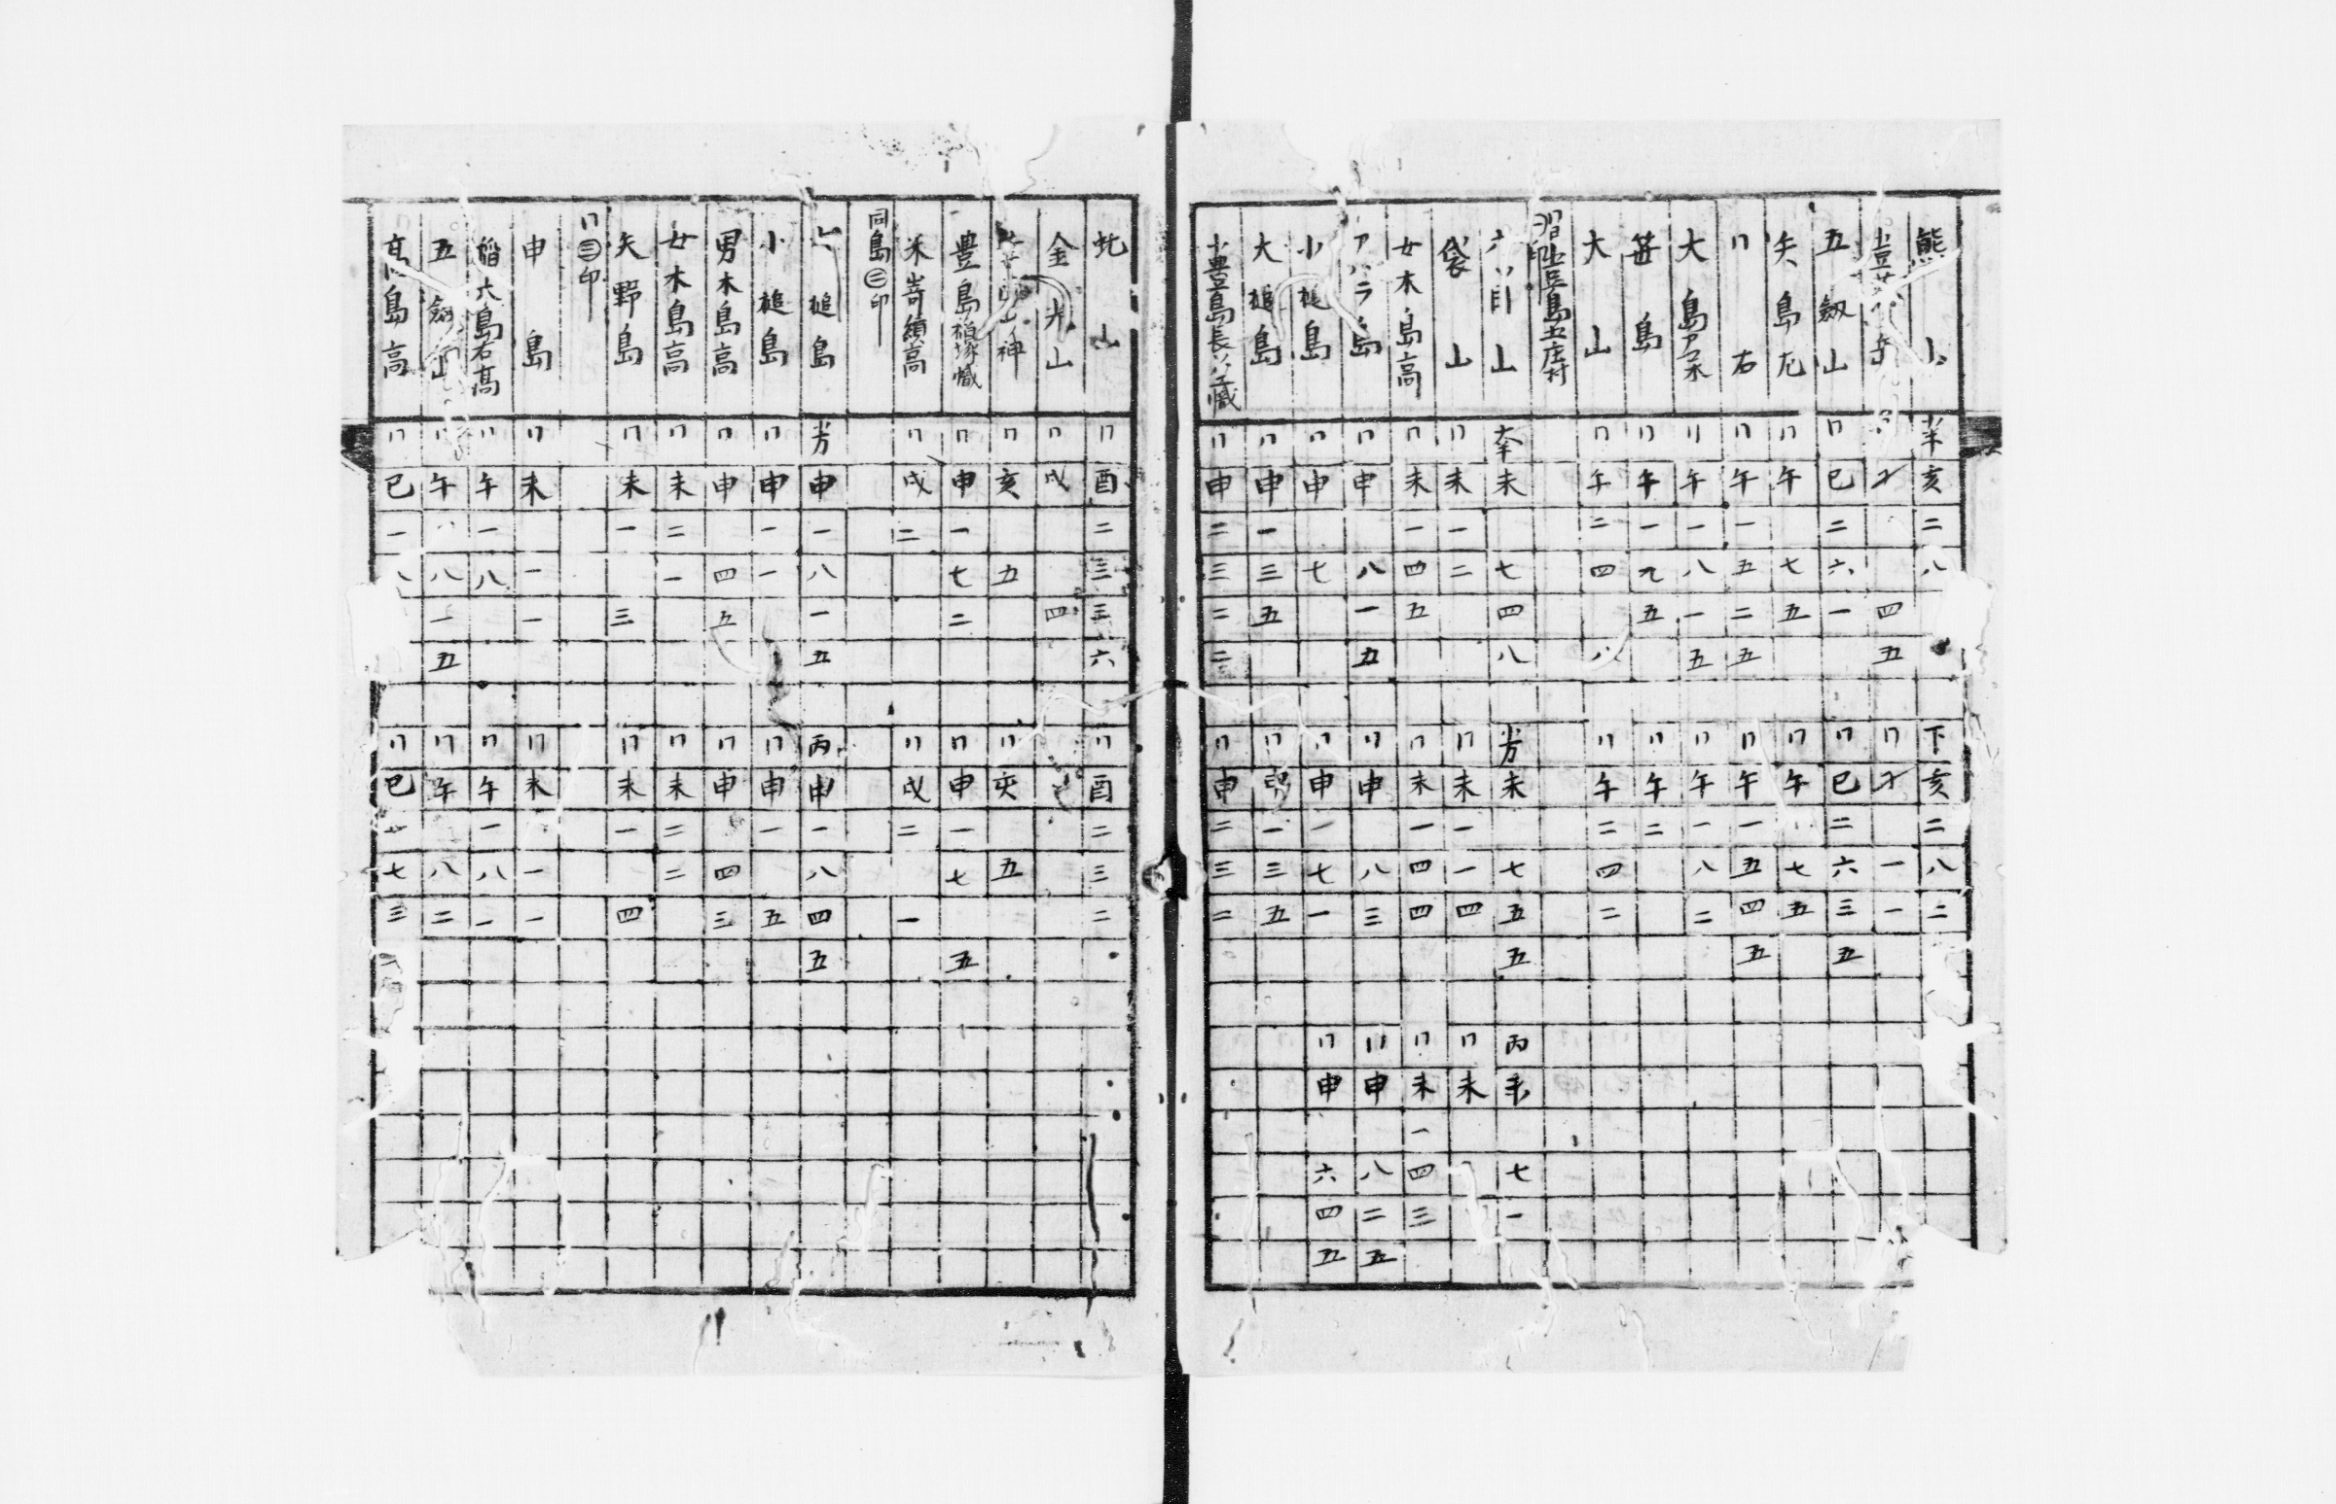 熊山 半 亥 二 八 下 亥 二 八 二
四 五 〃 一 一
五剱山 〃 巳 二 六 一 〃 巳 二 六 三 五
矢島 〃 午 七 五 〃 午 七 五
〃 右 〃 午 一 五 二 五 〃 午 一 五 四 五
大島 〃 午 一 八 一 五 〃 午 一 八 二
笹島 〃 午 一 九 五 〃 午 二
大山 〃 午 二 四 八 〃 午 二 四 二
六ツ目山 未 七 四 八 未 七 五 五 丙 未 七 一
袋山 〃 未 一 二 〃 未 一 一 四 〃 未
女木島高 〃 未 一 四 五 〃 未 一 四 四 〃 未 一 四 三
島 〃 申 八 一 五 〃 申 八 三 〃 申 八 二 五
小槌島 〃 申 七 〃 申 一 七 一 〃 申 六 四 五
大槌島 〃 申 一 三 五 〃 申 一 三 五
小豊島長 〃 申 二 三 二 二 〃 申 二 三 二
山 〃 酉 二 三 三 六 〃 酉 二 三 二
金光山 〃 戌 四
〃 亥 五 〃 亥 五
豊島 〃 申 一 七 二 〃 申 一 七 五
米嵜 高 〃 戌 二 〃 戌 二 一
同島㊁印
槌島 申 一 八 一 五 丙 申 一 八 四 五
小槌島 〃 申 一 一 〃 申 一 五
男木島高 〃 申 四 五 〃 申 四 三
女木島高 〃 未 二 一 〃 未 二 二
矢野島 〃 未 一 三 〃 未 一 四
〃㊂印
申島 〃 未 一 一 〃 未 一 一
大島右高 〃 午 一 八 〃 午 一 八 一
五剱山 〃 午 八 一 五 〃 午 八 二
高島高 〃 巳 一 八 〃 巳 一 七 三